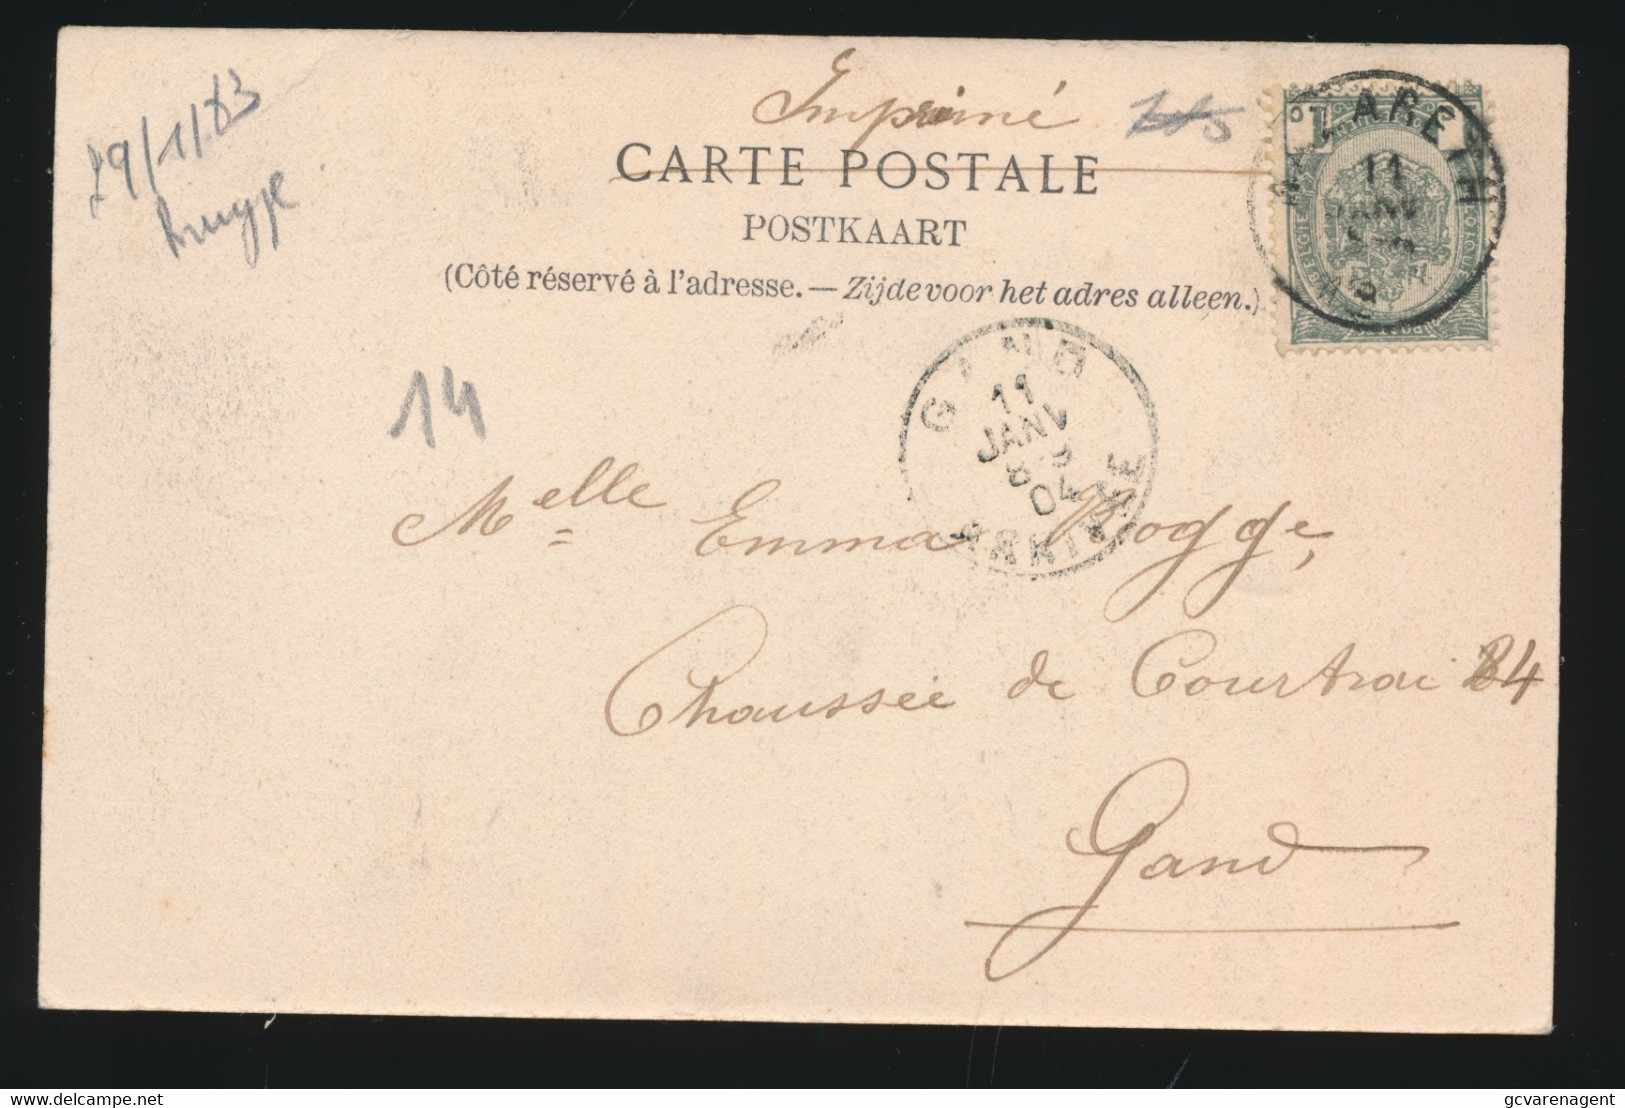 Imprimé
29/1/83
CARTE POSTALE
POSTKAART
(Côté réservé à l'adresse. — Zijde voor het adres alleen.)
NAZARETH
11
JANV
GAND
11
JANV
8-9
04
ARRIVÉE
14
Melle Emma Rogge,
Chaussée de Courtrai 84
Gand
delcampe.net
gcvarenagent